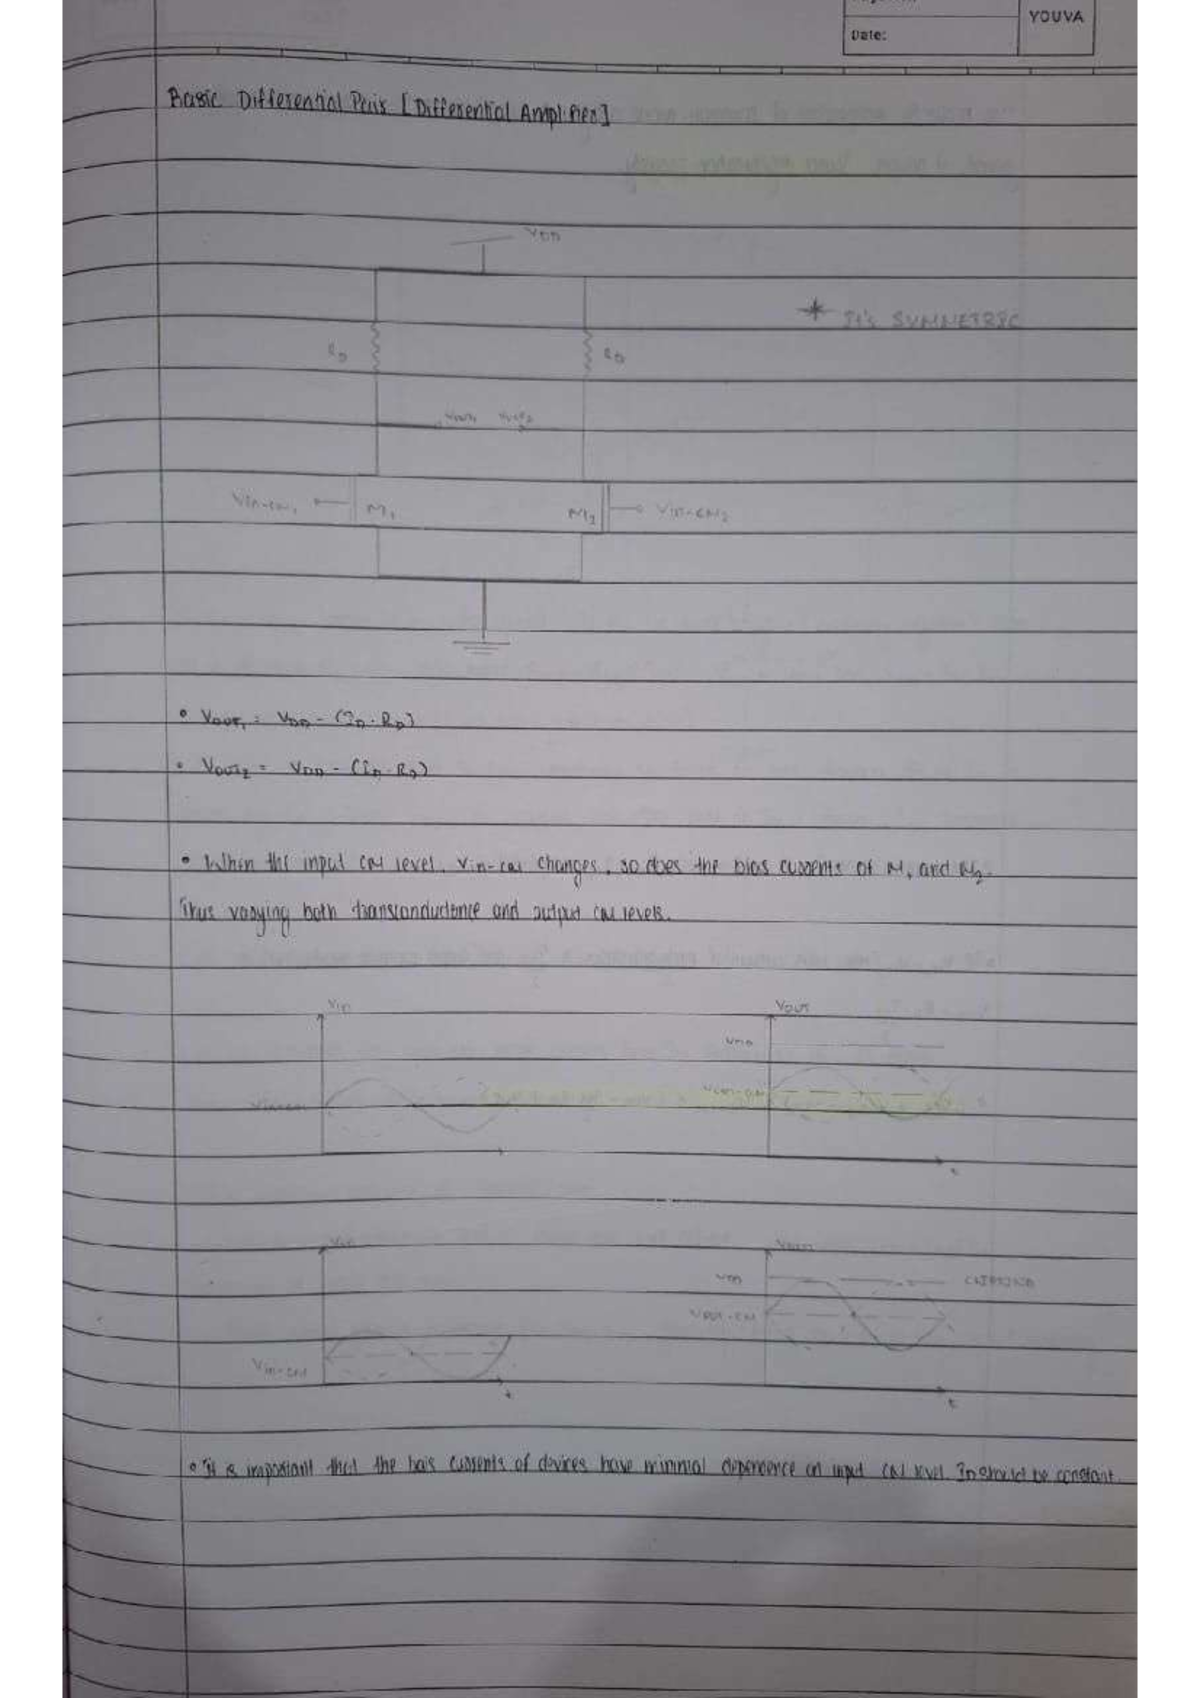 YOUVA
Date:
Basic Differential Pair [Differential Amplifier]
VDD
* It's SYMMETRIC
RD RD
Vout1 Vout2
Vin-CM1 M1 M2 Vin-CM2
• VOUT1 = VDD - (ID · RD)
• VOUT2 = VDD - (ID · RD)
• When the input CM level, Vin-CM changes, so does the bias currents of M1 and M2.
Thus varying both transconductance and output CM levels.
Vin VOUT
VDD
Vin-CM Vout-CM
t
Vin Vout
VDD CLIPPING
VOUT-CM
Vin-CM
t t
• It is important that the bais currents of devices have minimal dependence on input CM level. ID should be constant.